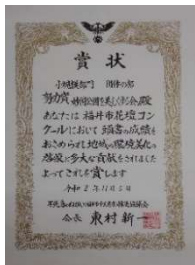 賞状
小規模部門 団体の部
努力賞 公園を美しくする会殿
あなたは福井市花壇コン
クールにおいて頭書の成績を
おさめられ地域の環境美化の
発展に多大な貢献をされました
よってこれを賞します
令和2年11月5日
会長 東村新一